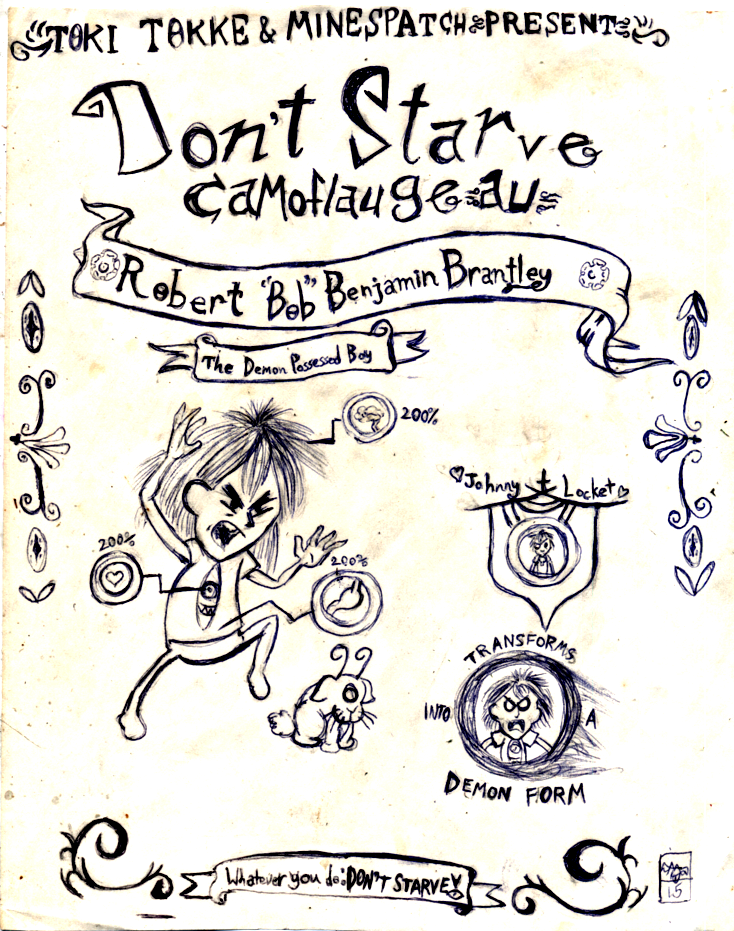 TOKI TOKKE & MINESPATCH PRESENT
Don't Starve
Camoflauge au
Robert "Bob" Benjamin Brantley
The Demon Possessed Boy
200%
Johnny Locket
200%
200%
TRANSFORMS
INTO A
DEMON FORM
Whatever you do: DON'T STARVE!
15